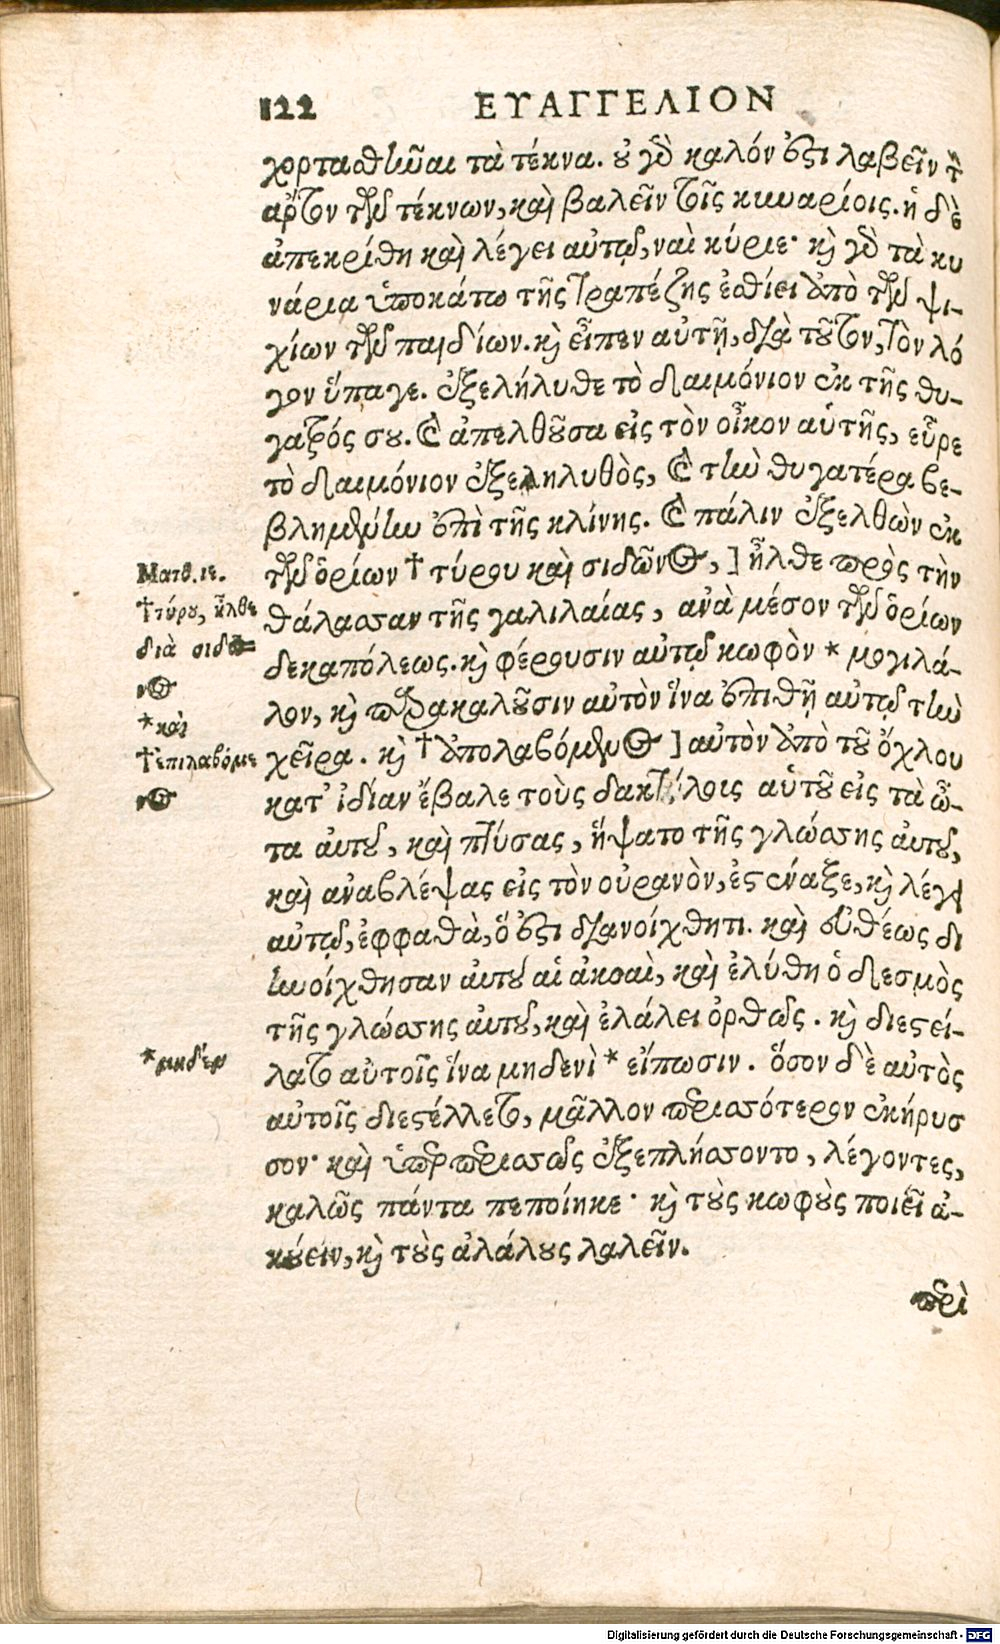 122 ΕΥΑΓΓΕΛΙΟΝ
χορτασθῆναι τὰ τέκνα. οὐ γὰρ καλόν ἐστι λαβεῖν τὸν
ἄρτον τῶν τέκνων, καὶ βαλεῖν τοῖς κυναρίοις. ἡ δὲ
ἀπεκρίθη καὶ λέγει αὐτῷ, ναὶ κύριε· καὶ γὰρ τὰ κυ
νάρια ὑποκάτω τῆς τραπέζης ἐσθίει ἀπὸ τῶν ψι-
χίων τῶν παιδίων. καὶ εἶπεν αὐτῇ, διὰ τοῦτον, τὸν λό
γον ὕπαγε. ἐξελήλυθε τὸ δαιμόνιον ἐκ τῆς θυ-
γατρός σου. καὶ ἀπελθοῦσα εἰς τὸν οἶκον αὑτῆς, εὗρε
τὸ δαιμόνιον ἐξεληλυθὸς, καὶ τὴν θυγατέρα βε-
βλημένην ἐπὶ τῆς κλίνης. καὶ πάλιν ἐξελθὼν ἐκ
Ματθ. ιε.
τῶν ὁρίων † τύρου καὶ σιδῶνος, ] ἦλθε πρὸς τὴν
† τύρου, ἦλθε
θάλασσαν τῆς γαλιλαίας, ἀνὰ μέσον τῶν ὁρίων
διὰ σιδῶ=
δεκαπόλεως. καὶ φέρουσιν αὐτῷ κωφὸν * μογιλά-
νος
λον, καὶ παρακαλοῦσιν αὐτὸν ἵνα ἐπιθῇ αὐτῷ τὴν
* καὶ
χεῖρα. καὶ † ἀπολαβόμενος ] αὐτὸν ἀπὸ τοῦ ὄχλου
† ἐπιλαβόμε
νος
κατ' ἰδίαν ἔβαλε τοὺς δακτύλοις αὑτοῦ εἰς τὰ ὦ-
τα αὐτοῦ, καὶ πτύσας, ἥψατο τῆς γλώσσης αὐτοῦ,
καὶ ἀναβλέψας εἰς τὸν οὐρανὸν, ἐστέναξε, καὶ λέγει
αὐτῷ, ἐφφαθὰ, ὅ ἐστι διανοίχθητι. καὶ εὐθέως δι
ηνοίχθησαν αὐτοῦ αἱ ἀκοαὶ, καὶ ἐλύθη ὁ δεσμὸς
τῆς γλώσσης αὐτοῦ, καὶ ἐλάλει ὀρθῶς. καὶ διεστεί-
* μηδὲν
λατο αὐτοῖς ἵνα μηδενὶ * εἴπωσιν. ὅσον δὲ αὐτὸς
αὐτοῖς διεστέλλετο, μᾶλλον περισσότερον ἐκήρυσ
σον· καὶ ὑπερπερισσῶς ἐξεπλήσσοντο, λέγοντες,
καλῶς πάντα πεποίηκε· καὶ τοὺς κωφοὺς ποιεῖ ἀ-
κούειν, καὶ τοὺς ἀλάλους λαλεῖν.
περὶ
Digitalisierung gefördert durch die Deutsche Forschungsgemeinschaft - DFG